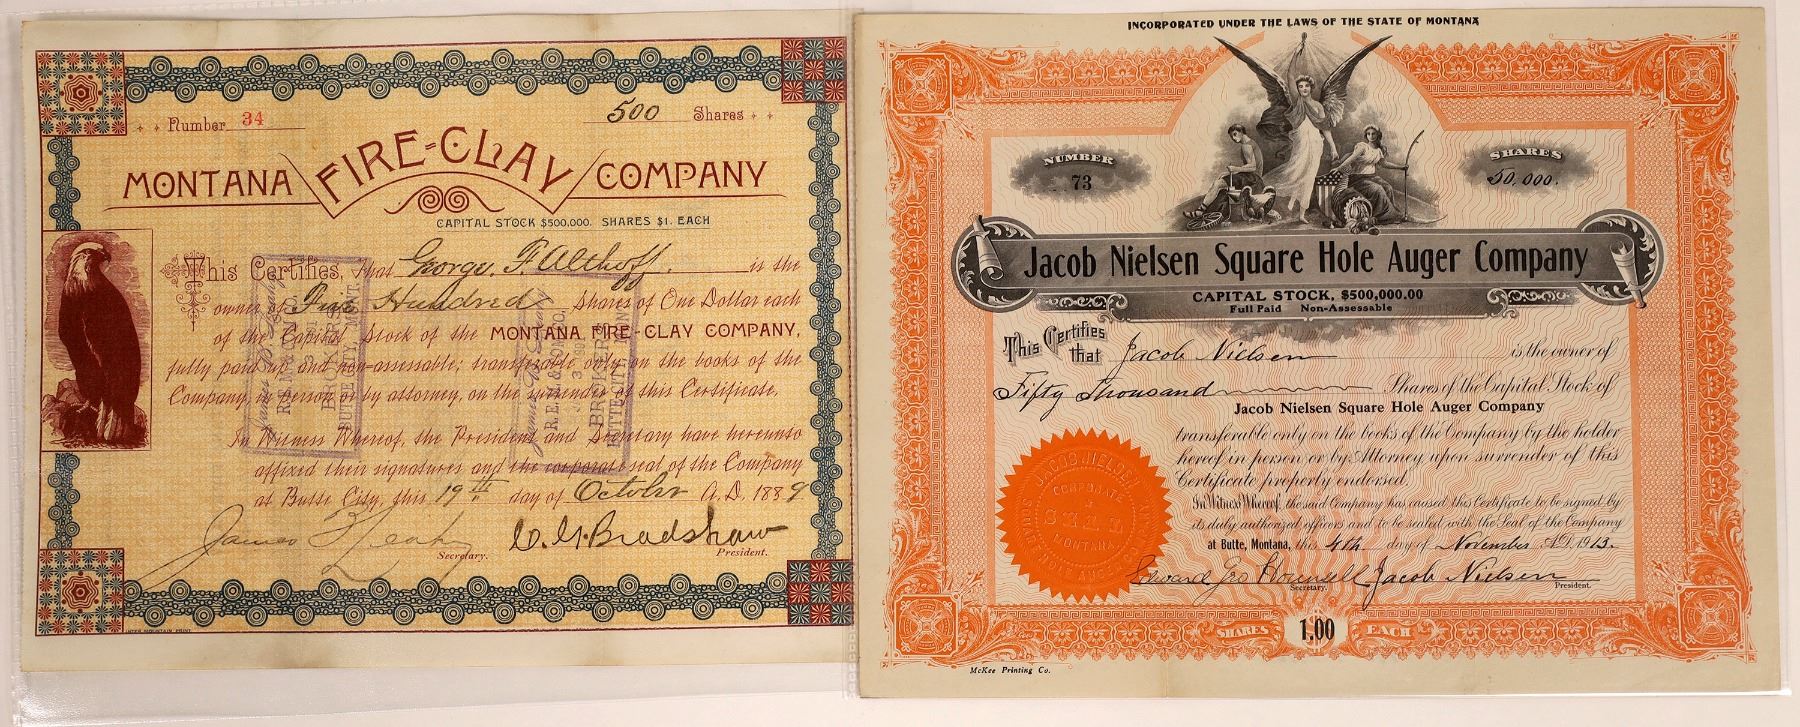 Number 34
500 Shares
MONTANA FIRE-CLAY COMPANY
CAPITAL STOCK $500,000. SHARES $1. EACH
This Certifies, that George F. Althoff is the
owner of Five Hundred Shares of One Dollar each
of the Capital Stock of the MONTANA FIRE-CLAY COMPANY,
fully paid up and non-assessable; transferable only on the books of the
Company, in person or by attorney, on the surrender of this Certificate.
In Witness Whereof, the President and Secretary have hereunto
affixed their signatures and the corporate seal of the Company
at Butte City, this 19th day of October A.D. 1889
James Leahy
Secretary.
C. G. Bradshaw
President.
INTER MOUNTAIN PRINT.
BUTTE CITY, MONT.
BUTTE CITY, MONT.
INCORPORATED UNDER THE LAWS OF THE STATE OF MONTANA
NUMBER
73
SHARES
50,000.
Jacob Nielsen Square Hole Auger Company
CAPITAL STOCK, $500,000.00
Full Paid Non-Assessable
This Certifies that Jacob Nielsen is the owner of
Fifty Thousand Shares of the Capital Stock of
Jacob Nielsen Square Hole Auger Company
transferable only on the books of the Company by the holder
hereof in person or by Attorney upon surrender of this
Certificate properly endorsed.
In Witness Whereof, the said Company has caused this Certificate to be signed by
its duly authorized officers and to be sealed with the Seal of the Company
at Butte, Montana, this 4th day of November A.D. 1913.
Edward Geo Hounsell
Secretary.
Jacob Nielsen
President.
CORPORATE
SEAL
MONTANA
SHARES 1.00 EACH
McKee Printing Co.